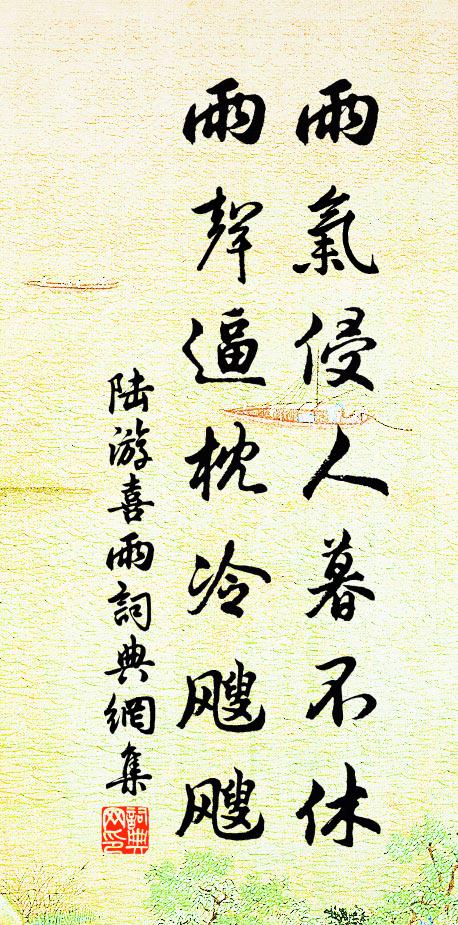 雨氣侵人暮不休
雨聲逼枕冷颼颼
陆游喜雨詞典網集
詞典网印